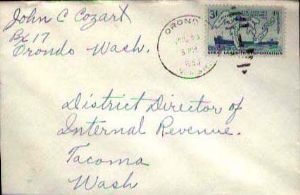 John C Cozart
Bx 17
Orondo Wash.
ORONDO
5 PM
WASH.
3¢
District Director of
Internal Revenue.
Tacoma
Wash